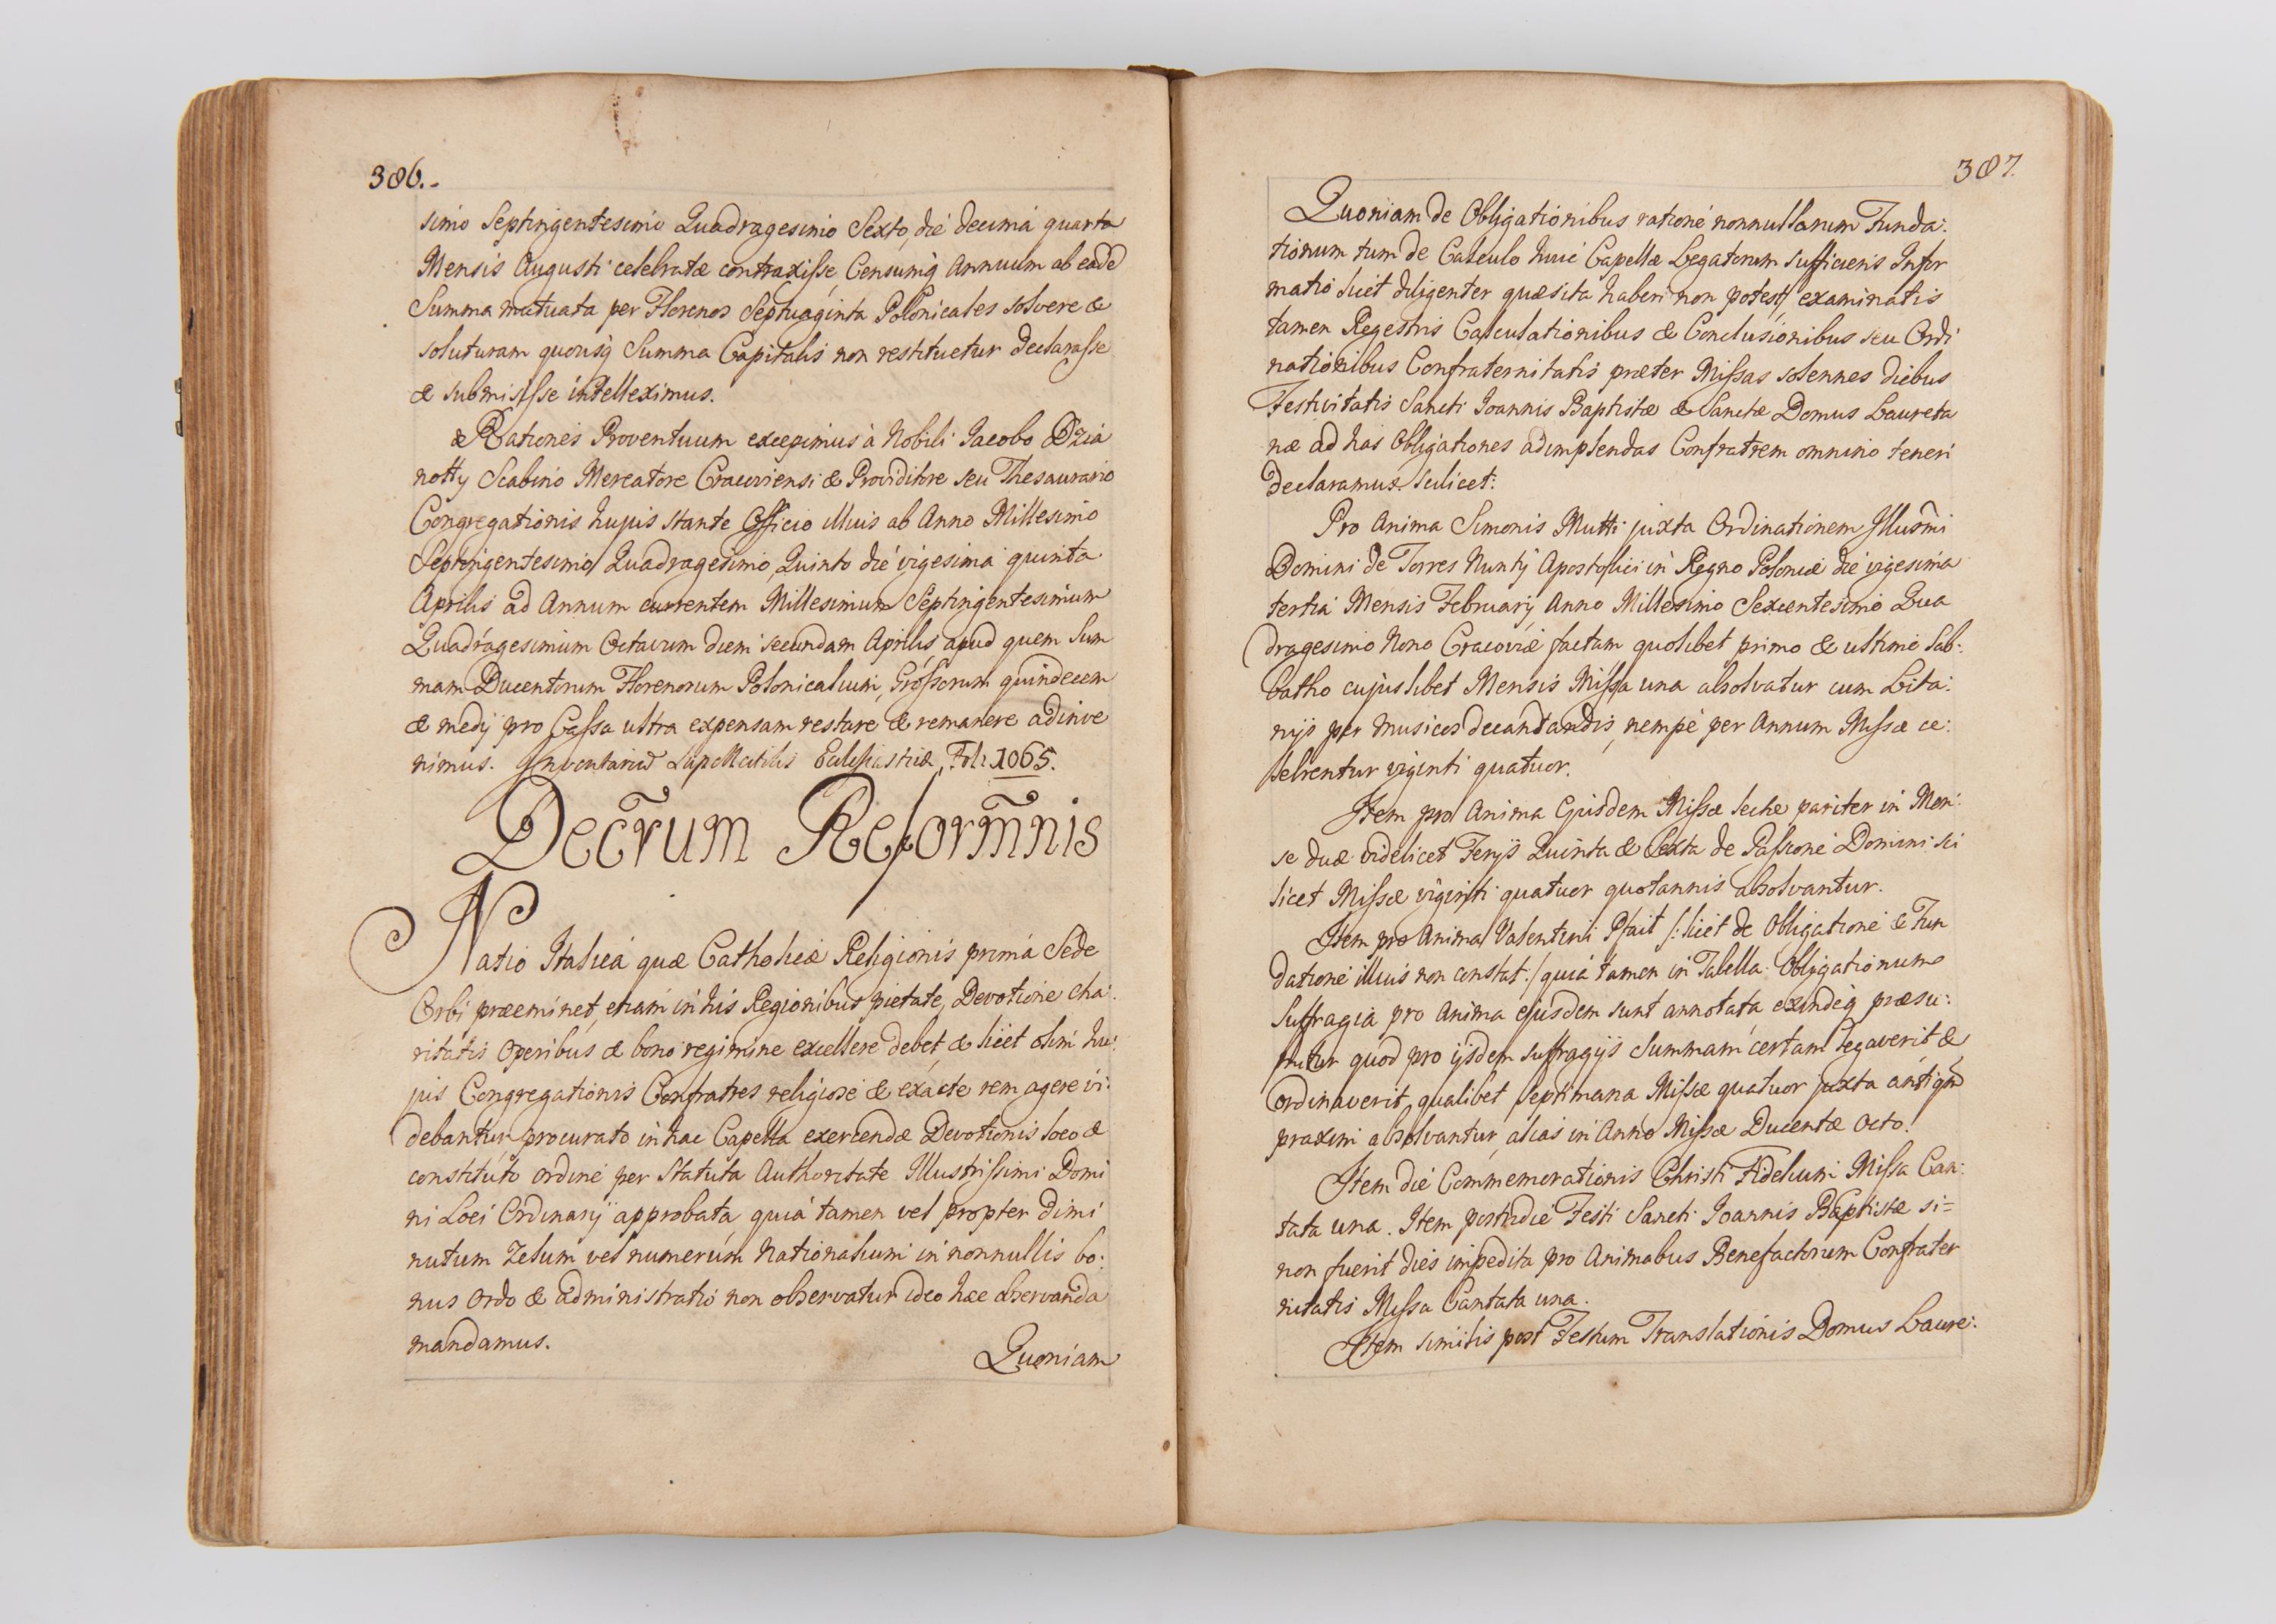 386.-
simo Septingentesimo Quadragesimo Sexto, die decima quarta
Mensis Augusti celebratæ contraxisse, Censumq Annuum ab eadē
Summa mutuata per Florenos Septuaginta Polonicales solvere &
soluturam quousq Summa Capitalis non restituetur declarasse
& submisisse intelleximus.
& Rationes Proventuum excepimus à Nobili Jacobo Dzia
notty Scabino Mercatore Cracoviensi & Providitore seu Thesaurario
Congregationis hujus stante Officio illius ab Anno Millesimo
Septingentesimo Quadragesimo Quinto die vigesima quinta
Aprilis ad Annum currentem Millesimum Septingentesimum
Quadragesimum Octavum diem secundam Aprilis apud quem Sum
mam Ducentorum Florenorum Polonicalium, Grossorum quindecem
& medij pro Cassa ultra expensam restare & remanere adinve
nimus. Inventariū Supellectilis Ecclesiasticæ, Fol: 1065.
Decr̄um Reform̄nis
Natio Italica quæ Catholicæ Religionis prima Sede
Orbi præeminet, etiam in his Regionibus pietate, Devotione cha:
ritatis Operibus & bono regimine excellere debet & licet olim hu:
jus Congregationis Confratres religiose & exacte rem agere vi:
debantur procurato in hac Capella exercendæ Devotionis loco &
constituto ordine per Statuta Authoritate Illustrissimi Domi
ni Loci Ordinarij approbata, quia tamen vel propter dimi
nutum Zelum vel numerum Nationalium in nonnullis bo:
nus Ordo & administratio non observatur ideo hæc observanda
mandamus.
Quoniam
387.
Quoniam de Obligationibus ratione nonnullarum Funda:
tionum tum de Calculo huic Capellæ Legatorum sufficiens Infor
matio licet diligenter quæsita haberi non potest, examinatis
tamen Regestris Calculationibus & Conclusionibus seu Ordi
nationibus Confraternitatis præter Missas solennes diebus
Festivitatis Sancti Joannis Baptistæ & Sanctæ Domus Laureta
næ ad has Obligationes adimplendas Confratrem omnino teneri
declaramus. scilicet:
Pro Anima Simonis Mutti juxta Ordinationem Illusm̄i
Domini de Torres Nuntij Apostolici in Regno Poloniæ die vigesima
tertia Mensis February Anno Millesimo Sexcentesimo Qua
dragesimo Nono Cracoviæ factam quolibet primo & ultimo Sab:
batho cujuslibet Mensis Missa una absolvatur cum Lita:
nijs per Musicos decantandis, nempe per Annum Missæ ce:
lebrentur viginti quatuor.
Item pro Anima Ejusdem Missæ lectæ pariter in Men:
se duæ videlicet Ferijs Quinta & Sexta de Passione Domini sci
licet Missæ viginti quatuor quotannis absolvantur.
Item pro Anima Valentini Pfait /: licet de Obligatione & Fun
datione illius non constat :/ quia tamen in Tabella Obligationum
Suffragia pro Anima ejusdem sunt annotata exindeq præsu:
mitur quod pro ijsdem suffragijs Summam certam legaverit &
Ordinaverit, qualibet Septimana Missæ quatuor juxta antiqm̄
praxim absolvantur, alias in Anno Missæ Ducentæ Octo.
Item die Commemorationis Christi Fidelium Missa Can:
tata una. Item postridie Festi Sancti Joannis Baptistæ si=
non fuerit dies impedita pro Animabus Benefactorum Confrater
nitatis Missa Cantata una.
Item similis post Festum Translationis Domus Laure: